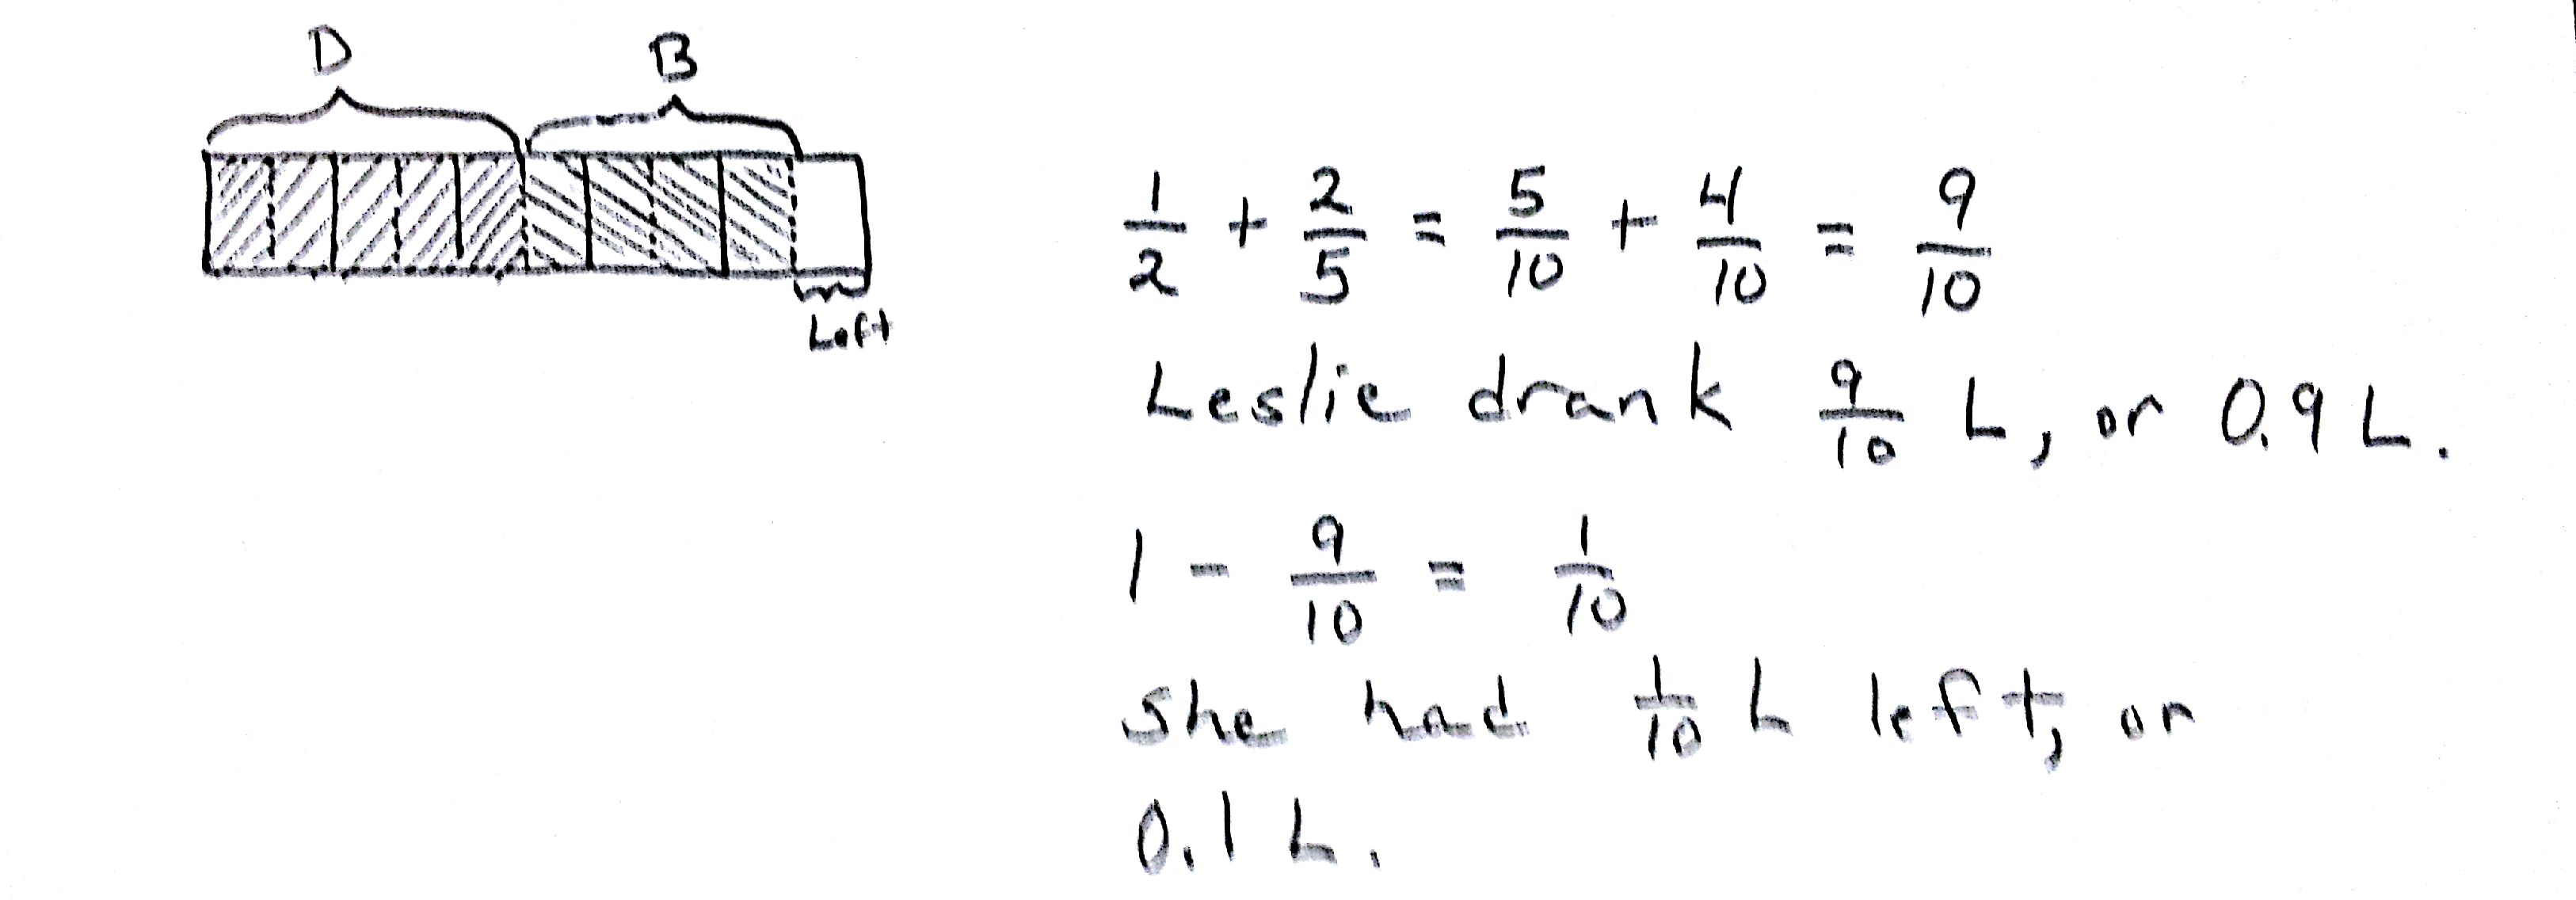 D B
Left
1/2 + 2/5 = 5/10 + 4/10 = 9/10
Leslie drank 9/10 L, or 0.9 L.
1 - 9/10 = 1/10
She had 1/10 L left, or
0.1 L.